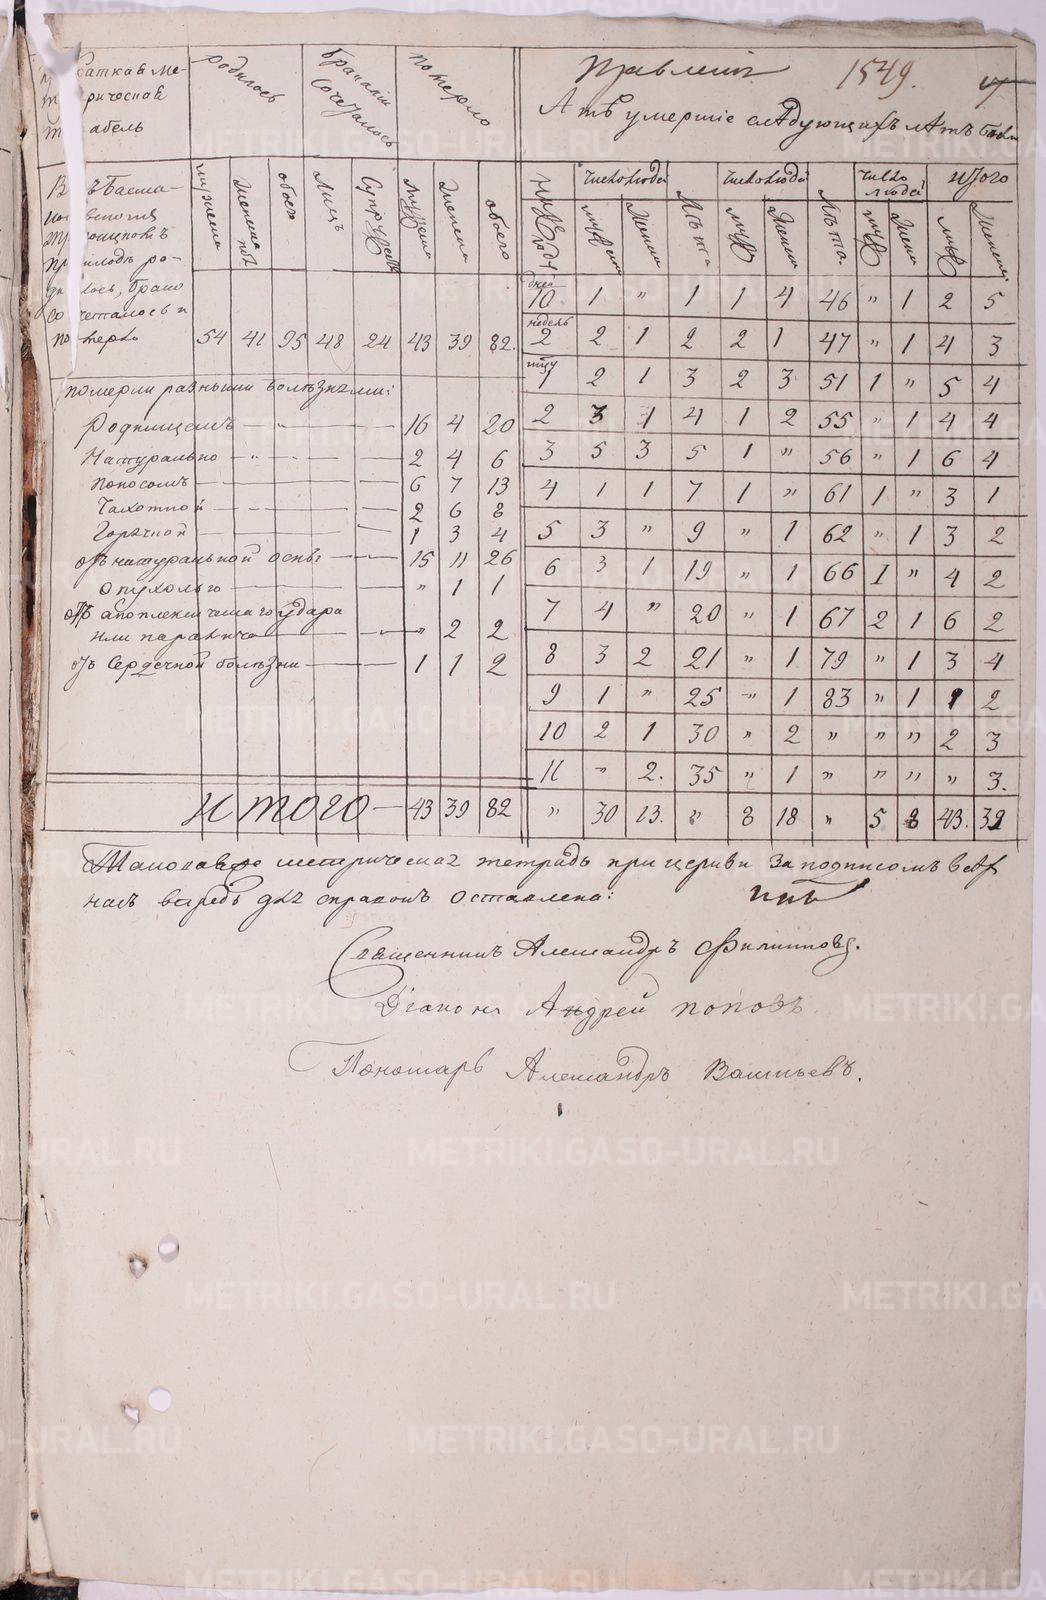 Краткая Ме-
трическая
табель
родилось
Бракомъ
Сочеталось
померло
Правленiя 1549.
А тѣ умершiе слѣдующихъ лѣтъ были
мужеска
женска
обоего
Лицъ
Супружествъ
Мужеска
Женска
обоего
Число людей
Число людей
Число людей
Итого
муж
Женска
Лѣта
муж
Женска
Лѣта
муж
Женска
муж
Женска
родилось, брако
сочеталось и
померло 54 41 95 48 24 43 39 82.
померли разными болѣзнями:
Родимцемъ 16 4 20
Натурально 2 4 6
Поносомъ 6 7 13
Чахоткой 2 6 8
Горячкой 1 3 4
отъ натуральной оспы 15 11 26
опухолью " 1 1
отъ апоплексическаго удара
или паралича " 2 2
отъ Сердечной болѣзни 1 1 2
Итого 43 39 82
дней
10 1 " 1 1 4 46 " 1 2 5
недель
2 2 1 2 2 1 47 " 1 4 3
1 2 1 3 2 3 51 1 " 5 4
2 3 1 4 1 2 55 " 1 4 4
3 5 3 5 1 " 56 " 1 6 4
4 1 1 7 1 " 61 1 " 3 1
5 3 " 9 " 1 62 " 1 3 2
6 3 1 19 " 1 66 1 " 4 2
7 4 " 20 " 1 67 2 1 6 2
8 3 2 21 " 1 79 " 1 3 4
9 1 " 25 " 1 83 " 1 1 2
10 2 1 30 " 2 " " " 2 3
11 " 2. 35 " 1 " " " " 3.
" 30 13. " 8 18 " 5 8 43. 39
Таковая метрическая тетрадь при церкви за подписомъ
насъ впредь для справокъ оставлена:
Священникъ Александръ Филипповъ.
Дiаконъ Андрей Поповъ
Пономарь Александръ Васильевъ.
METRIKI.GASO-URAL.RU